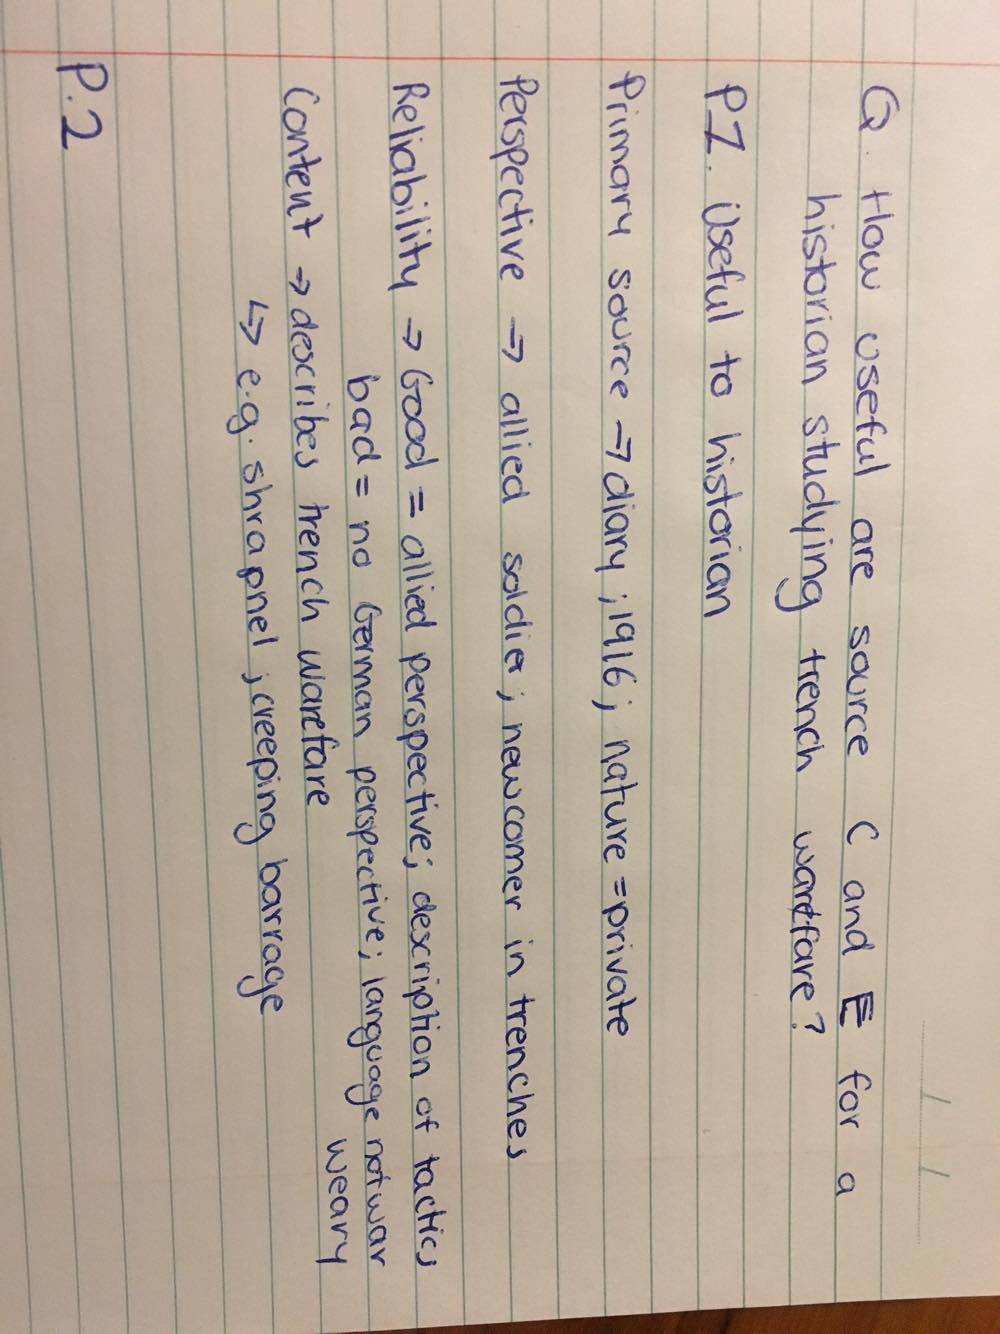 Q. How useful are source C and E for a
historian studying trench warefare?
P1. Useful to historian
Primary source → diary; 1916; nature = private
Perspective → allied soldier; newcomer in trenches
Reliability → Good = allied perspective; description of tactics
bad = no German perspective; language not war
weary
Content → describes trench warefare
↳ e.g. shrapnel; creeping barrage
P.2